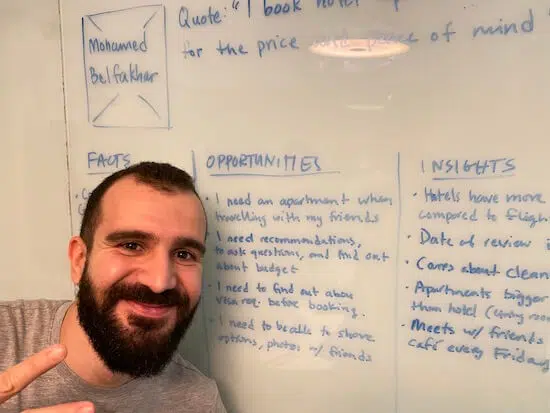 Mohamed
Belfakhar
Quote: "I book hotel
for the price and peace of mind
FACTS
OPPORTUNITIES
I need an apartment when
travelling with my friends
I need recommendations,
to ask questions, and find out
about budget
I need to find out about
visa req. before booking.
I need to be able to share
options, photos w/ friends
INSIGHTS
Hotels have more
compared to fligh
Date of review
Cares about clean
Apartments bigger
than hotel (living room
Meets w/ friends
café every Friday